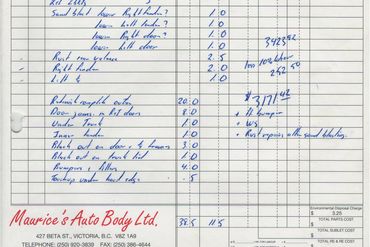 Sand blast lower Right fender? 1.0
" lower left fender? 1.0
" lower Right door? 1.0
" lower left door 1.0
Rust rear valance 2.5
Right fender 2.0
1.0
3423.92
less 10% labour
252.50
$3171.42
+ Ft bumper
+ W/S
+ Rust repairs after sand blasting.
Refinish complete outer 20.0
Door jambs in Rot doors 8.0
Under Trunk 1.0
Inner fender 1.0
Black out on doors & frames 3.0
Black out on trunk lid 1.0
Bumpers & fillers 4.0
Touchup under hood edge .5
38.5 11.5
Maurice's Auto Body Ltd.
427 BETA ST., VICTORIA, B.C. V8Z 1A9
TELEPHONE: (250) 920-3839 FAX: (250) 386-4644
Environmental Disposal Charge
$ 3.25
TOTAL PARTS COST
$
TOTAL SUBLET COST
$
TOTAL RE & RE COST